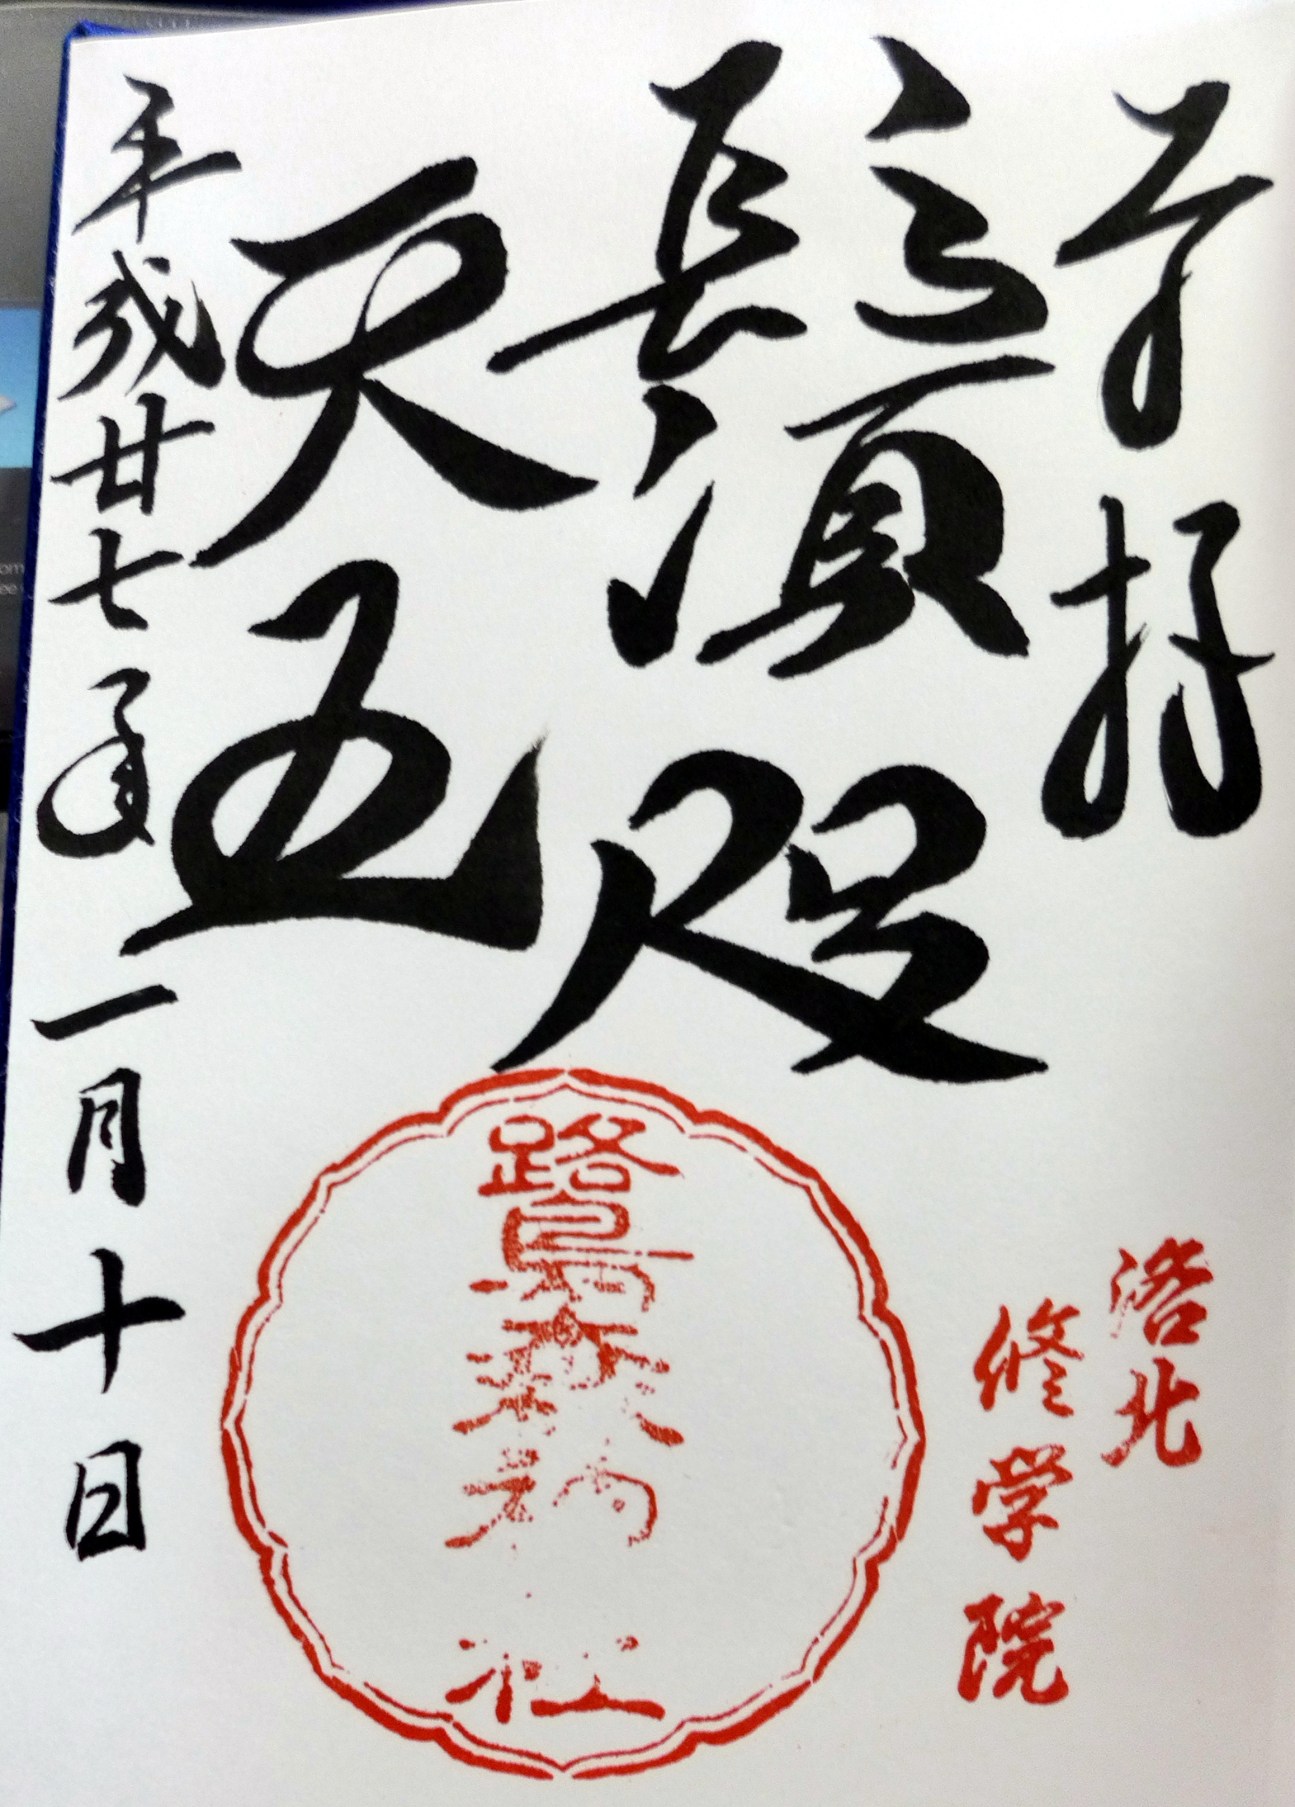 奉拝
鬚咫
天王
平成廿七年一月十日
洛北
修学院
鷺森神社